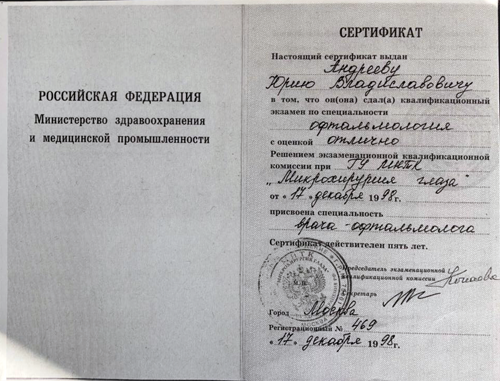 РОССИЙСКАЯ ФЕДЕРАЦИЯ
Министерство здравоохранения
и медицинской промышленности
СЕРТИФИКАТ
Настоящий сертификат выдан
Андрееву
Юрию Владиславовичу
в том, что он(она) сдал(а) квалификационный
экзамен по специальности
офтальмология
с оценкой отлично
Решением экзаменационной квалификационной
комиссии при ГУ МНТК
„Микрохирургия глаза"
от «17» декабря 1998 г.
присвоена специальность
врача-офтальмолога
Сертификат действителен пять лет.
Председатель экзаменационной
квалификационной комиссии
Секретарь
Город Москва
Регистрационный № 469
«17» декабря 1998 г.